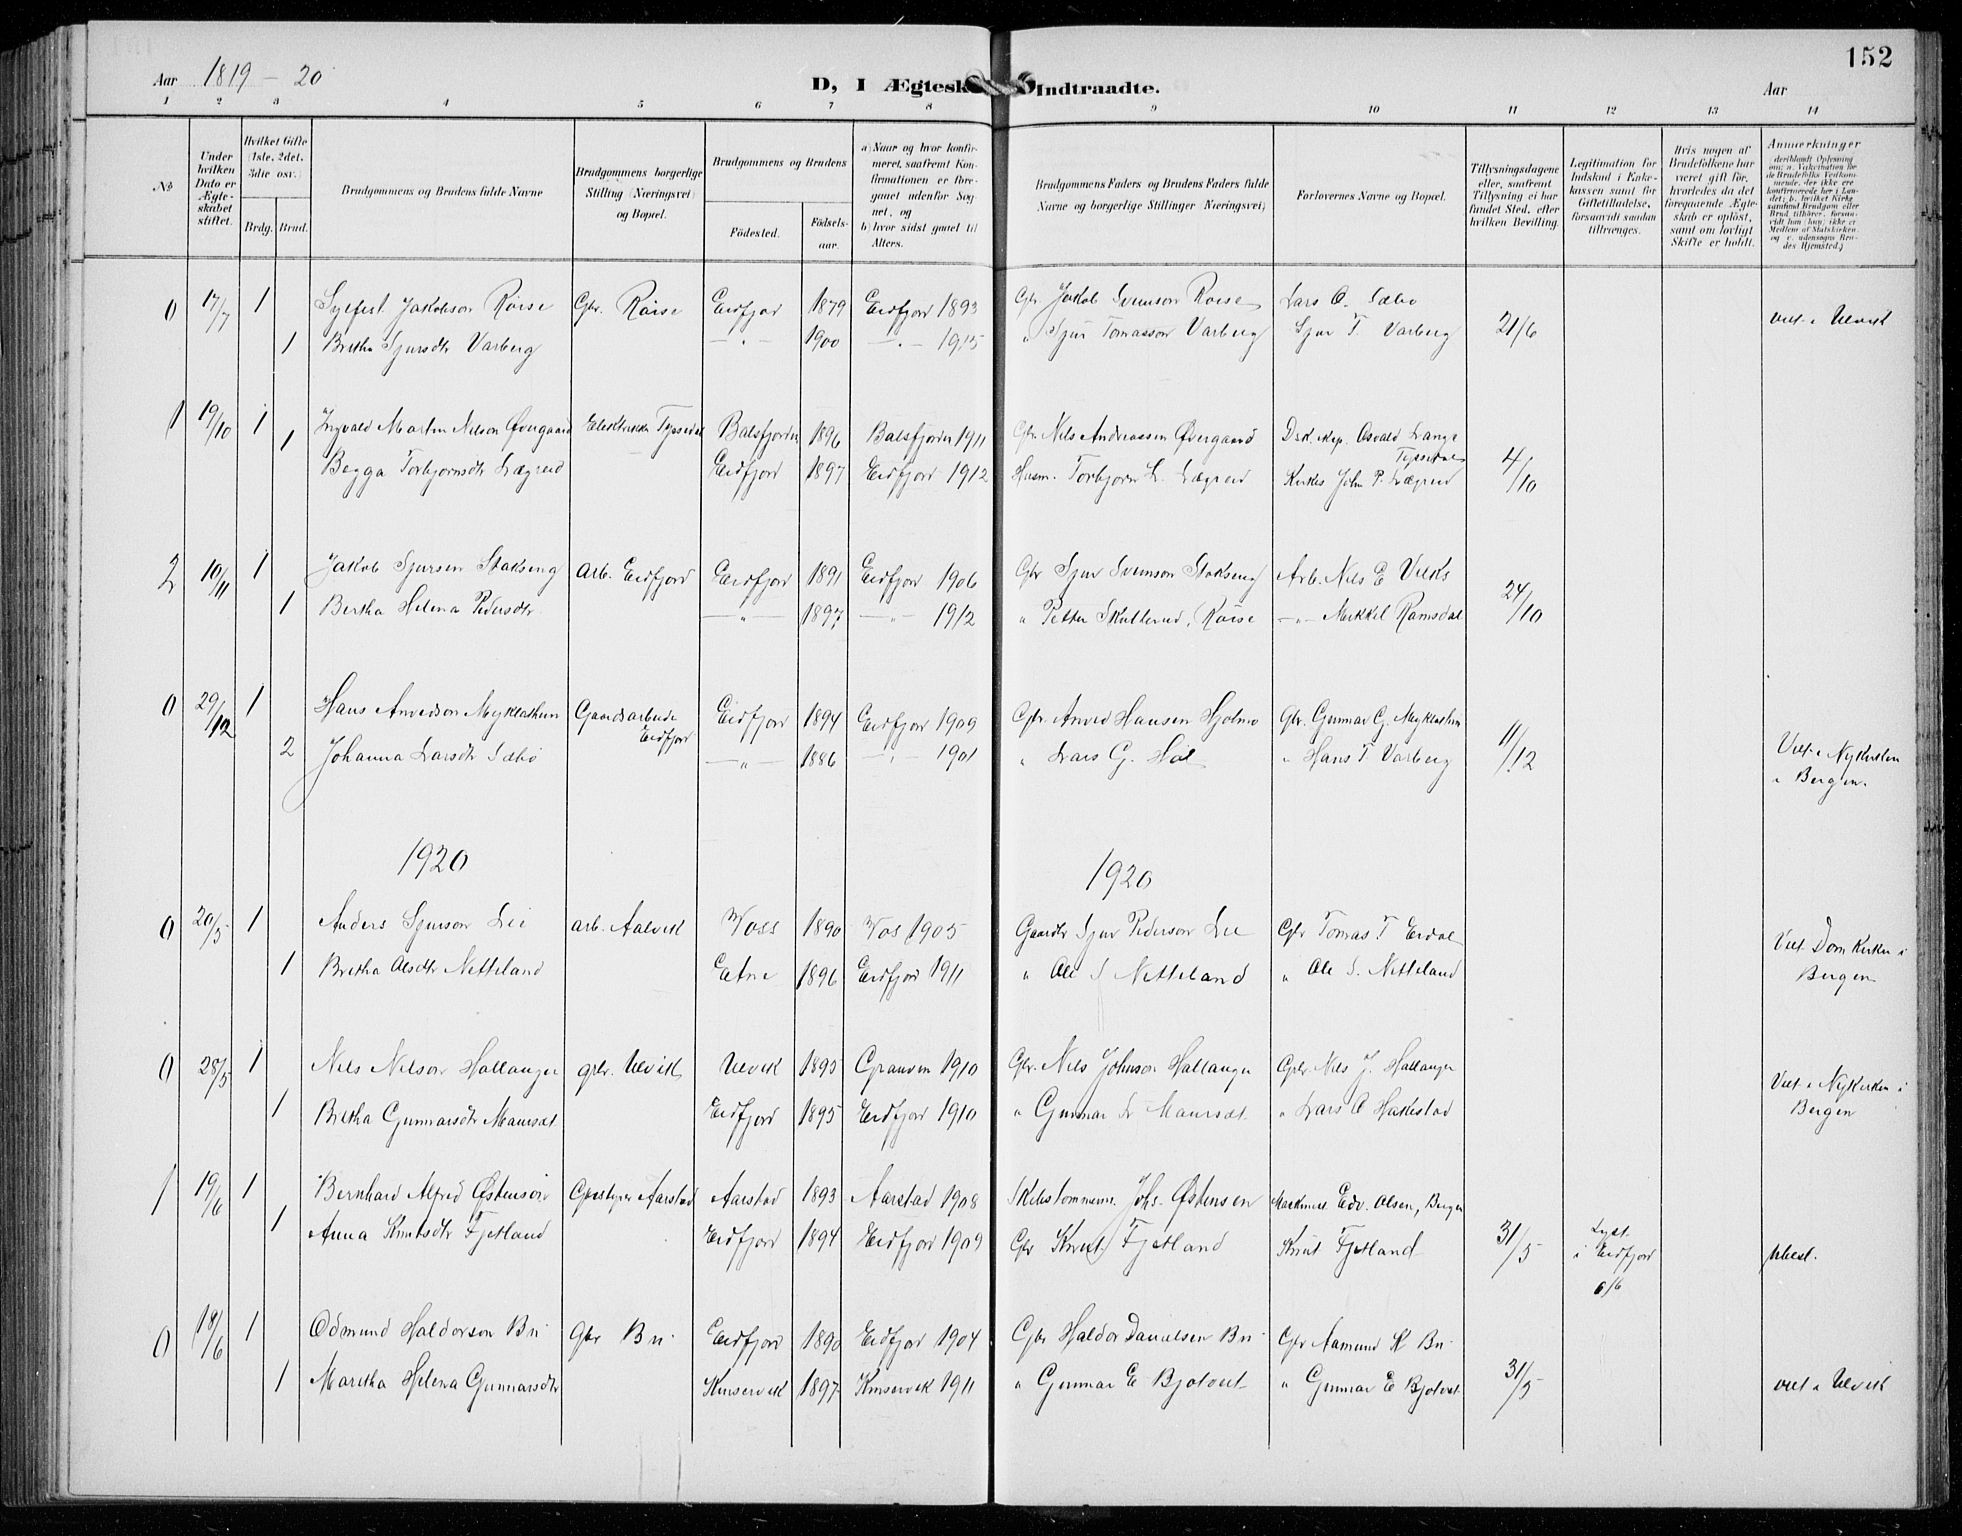 152
Aar 1819 - 20
D, I Ægtesk Indtraadte.
Aar
1 2 3 4 5 6 7 8 9 10 11 12 13 14
No
Under hvilken Dato er Ægteskabet stiftet.
Hvilket Gifte (1ste, 2det, 3die osv.)
Brdg. Brud.
Brudgommens og Brudens fulde Navne
Brudgommens borgerlige Stilling (Næringsvei) og Bopæl.
Brudgommens og Brudens
Fødested. Fødselsaar.
a) Naar og hvor konfirmeret, saafremt Konfirmationen er foregaaet udenfor Sognet, og
b) hvor sidst gaaet til Alters.
Brudgommens Faders og Brudens Faders fulde Navne og borgerlige Stillinger Næringsvei)
Forlovernes Navne og Bopæl.
Tillysningsdagene eller, saafremt Tillysning ei har fundet Sted, efter hvilken Bevilling.
Legitimation for Indskud i Enkekassen samt for Giftetilladelse, forsaavidt saadan tiltrænges.
Hvis nogen af Brudefolkene har været gift før, hvorledes da det foregaaende Ægteskab er opløst, samt om lovligt Skifte er holdt.
Anmerkninger
0 17/7 1 Sylfest Jakobson Röise Gbr. Röise Eidfjor 1879 Eidfjor 1893 Gbr. Jakob Svenson Röise Lars O. Sæbo
1 Bretha Sjursdtr Varberg -"- 1900 -"- 1915 " Sjur Tomasson Varberg Sjur T. Varberg 21/6 viet i Ulvik
1 19/10 1 Ingvald Martin Nilson Øvergaard Elektriker Tyssedal Balsfjorden 1896 Balsfjorden 1911 Gbr. Nils Andreassen Øvergaard Osvald Lange Tyssedal
1 Begga Torbjornsdtr Lægreid Eidfjord 1897 Eidfjord 1912 Husm. Torbjorn L. Lægreid John P. Lægreid 4/10
2 10/11 1 Jakob Sjursen Stokseng Arb. Eidfjord Eidfjord 1891 Eidfjor 1906 Gbr Sjur Svenson Stokseng Arb. Nils E Viks
1 Bertha Helena Pedersdtr. -"- 1897 -"- 1912 " Petter Skutterud, Röise -"- Mikkel Ramsdal 24/10
0 29/12 1 Hans Anvedson Myklathun Gaardsarbeide Eidfjor Eidfjor 1894 Eidfjor 1909 Gbr. Anved Hansen Hjolmo Gbr. Gunnar G. Myklathun
2 Johanna Larsdtr Sæbö -"- 1886 -"- 1901 " Lars G. Hol " Hans T Varberg 11/12 Viet i Nykirken i Bergen.
1920 1920
0 20/5 1 Anders Sjurson Lii arb. Aalvik Voss 1890 Vos 1905 Gaardbr Sjur Pederson Lie Gbr Tomas T Eidal
1 Bretha Olsdtr Netteland Eatne 1896 Eidfjor 1911 " Ole S Netteland " Ole S. Netteland Viet Domkirken i Bergen
0 28/5 1 Nils Nilson Hallanger gbr. Ulvik Ulvik 1895 Granvin 1910 Gbr. Nils Johnson Hallanger Gbr Nils J. Hallanger
1 Bretha Gunnarsdtr Maursæt Eidfjord 1895 Eidfjor 1910 " Gunnar L Maursæt " Lars O Hakestad Viet i Nykirken i Bergen
1 19/6 1 Bernhard Alfred Østensöiv Aarstad Aarstad 1893 Aarstad 1908 Skibstömmerm. Johs. Østensen Edv. Olsen, Bergen
1 Anna Knutsdtr Fjetland Eidfjor 1894 Eidfjor 1909 Gbr Knut Fjetland Knut Fjetland 31/5 Lyst. i Eidfjord 6/6
0 18/6 1 Odmund Haldorson Bu Gbr Bu Eidfjord 1890 Eidfjor 1904 Gbr Haldor Danielsen Bu Gbr Aamund K Bu
1 Maritha Helena Gunnarsdtr Kinservik 1897 Kinservik 1911 " Gunnar E Bjotveit " Gunnar E Bjotveit 31/5 viet i Ulvik